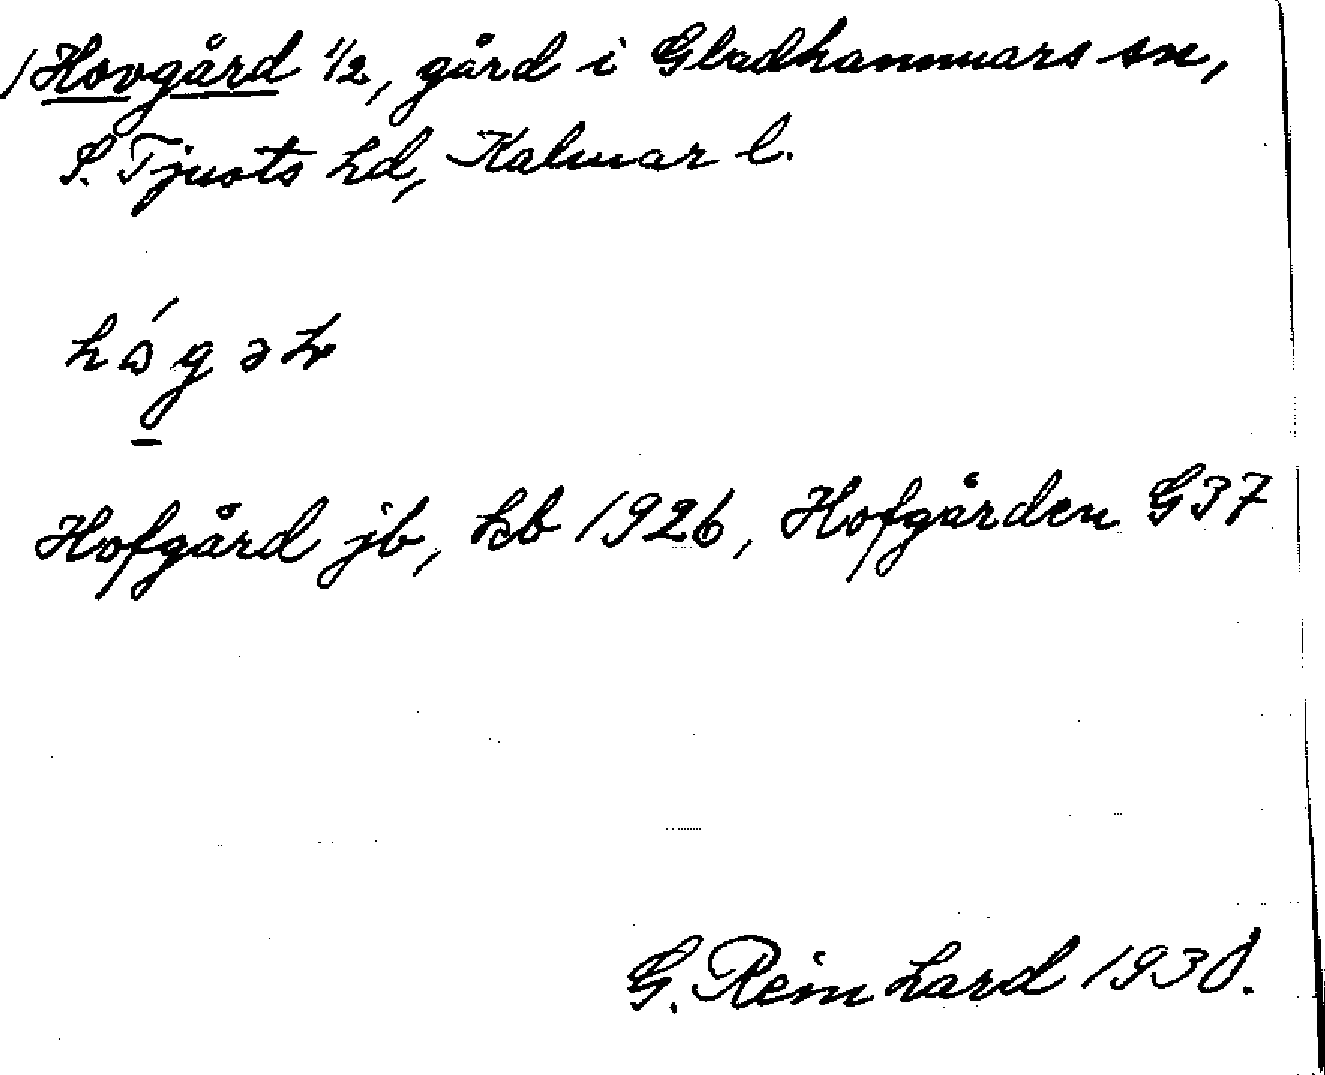 /Hovgård 1/2, gård i Gladhammars sn,
S. Tjusts hd, Kalmar l.
Hofgård jb, hb 1926, Hofgården G37
G. Reinhard 193